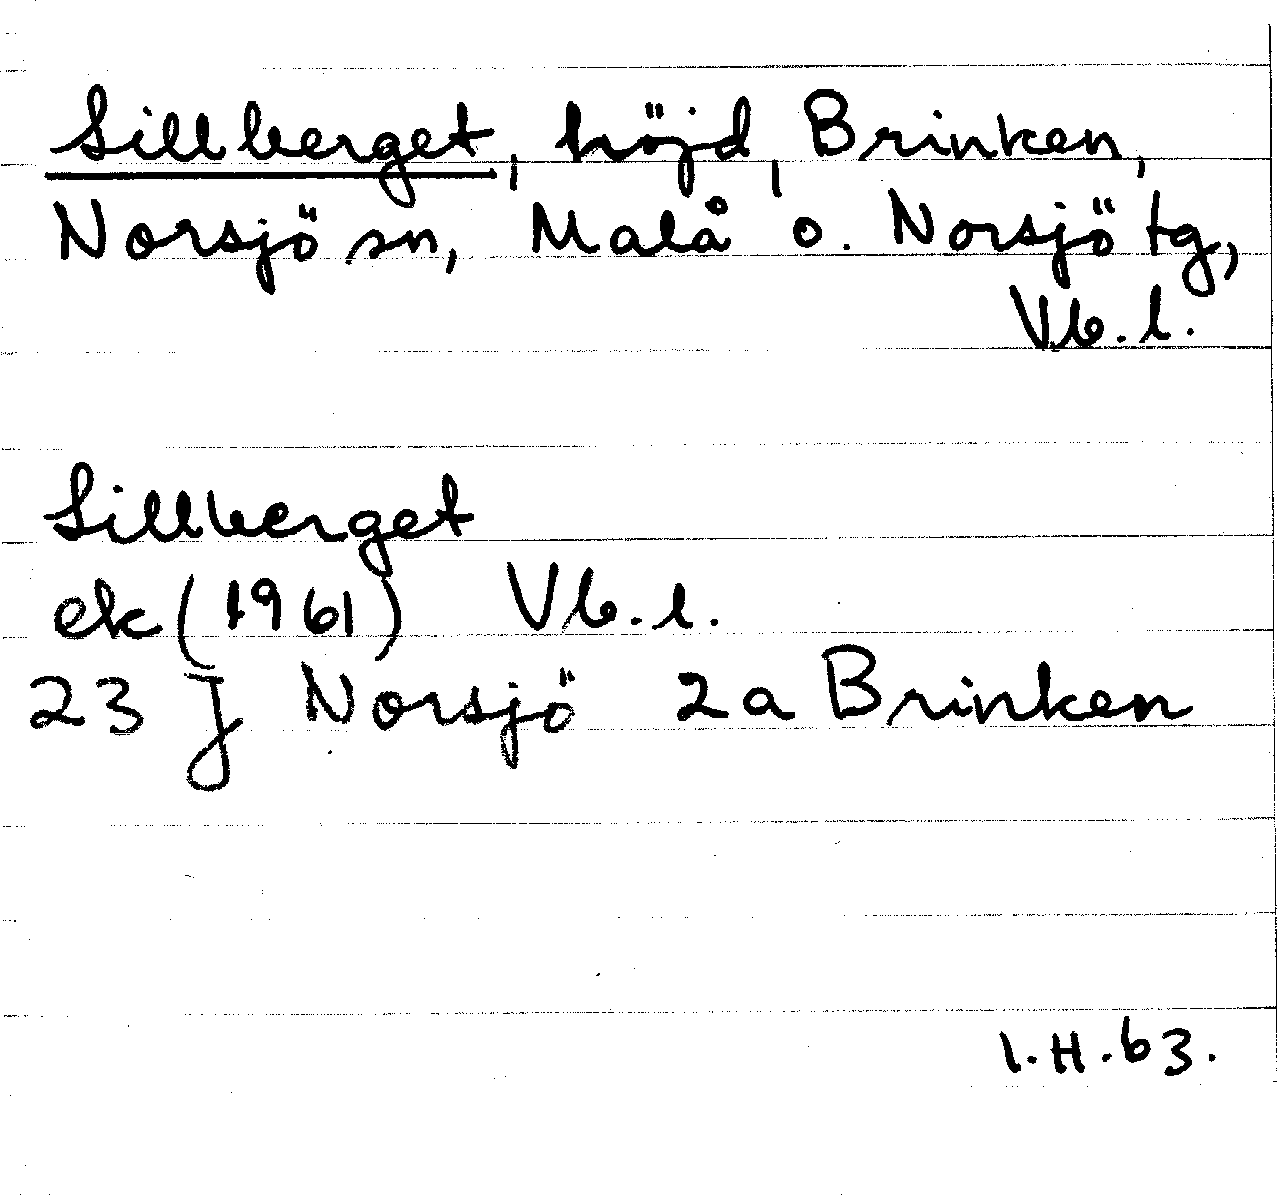 Sillberget, höjd, Brinken,
Norsjö sn, Malå o. Norsjö tg,
Vb.l.
Sillberget
ek (1961) Vb.l.
23 J Norsjö 2a Brinken
I.H.63.